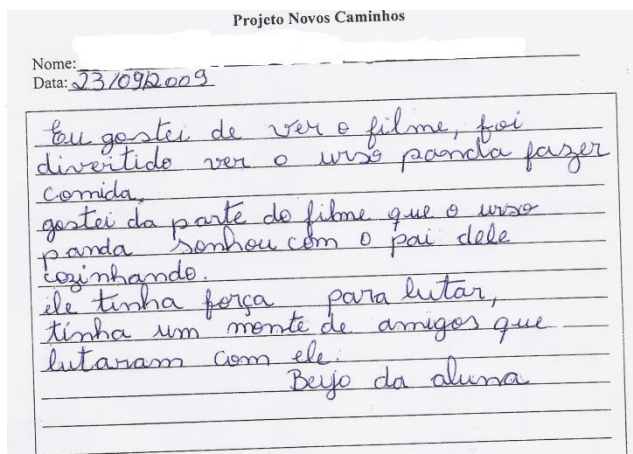 Projeto Novos Caminhos
Nome:
Data: 23/09/2009
Eu gostei de ver o filme, foi
divertido ver o urso panda fazer
comida.
gostei da parte do filme que o urso
panda sonhou com o pai dele
cozinhando.
ele tinha força para lutar,
tinha um monte de amigos que
lutaram com ele.
Beijo da aluna